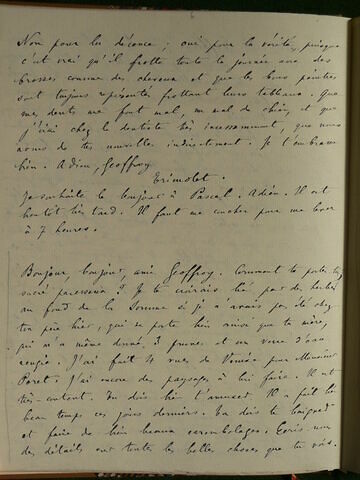 Non pour la décence ; oui pour la vérité, puisque
c'est vrai qu'il frotte toute la journée avec des
brosses comme des cheveux et que les bons peintres
sont toujours représentés frottant leurs tableaux. Que
mes dents me font mal, un mal de chien, et que
j'irai chez le dentiste très incessamment, que nous
avons de tes nouvelles indirectement. Je t'embrasse
bien. Adieu, Geoffroy
Trimolet.
Je souhaite le bonjour à Pascal. Adieu. Il est
bientôt très tard. Il faut me coucher pour me lever
à 7 heures.
Bonjour, bonjour, ami Geoffroy. Comment te portes-tu,
sacré paresseux ? Je te croirais lié par des herbes
au fond de la Somme si je n'avais pas été chez
ton père hier, qui se porte bien ainsi que ta mère,
qui m'a même donné 3 prunes et un verre d'eau
rougie. J'ai fait 4 vues de Venise pour Monsieur
Paret. J'ai encore des paysages à lui faire. Il est
très content. Tu dois bien t'amuser. Il a fait bien
beau temps ces jours derniers. Tu dois te baigner
et faire de bien beaux carambolages. Écris-nous
des détails sur toutes les belles choses que tu vois.